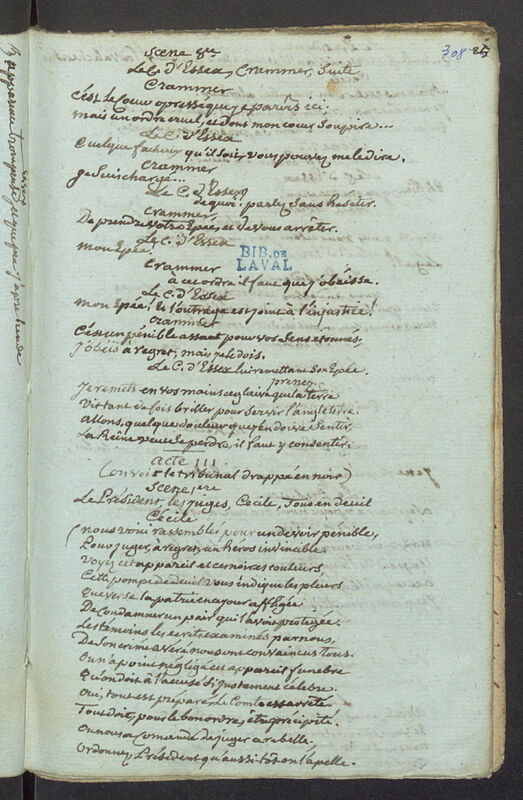 308 25
Scene 8me
Le C. d'Essex, Crammer, Suite
Crammer
C'est le coeur opressé que je parois ici.
Mais un ordre cruel, et dont mon coeur soupire...
Le C. d'Essex
Quelque facheux qu'il soit, vous pouvez me le dire.
Crammer
Je suis chargé...
Le C. d'Essex
de quoi? parlez sans hesiter.
Crammer
De prendre votre Epée, et de vous arrêter.
Le C. d'Essex
Mon Epée!
BIB. DE
LAVAL
Crammer
a cet ordre il faut que j'obéisse.
Le C. d'Essex
Mon Epée! Et l'outrage est joint à l'injustice!
Crammer
C'est un pénible assaut pour vos sens etonnés,
J'obéis à regret, mais je le dois.
Le C. d'Essex lui remettant son Epée.
prenez.
Je remets en vos mains ce glaive que la terre
Vit tant de fois briller pour servir l'angleterre.
Allons, quelque douleur que j'en doive sentir,
La Reine veut se perdre, il faut y consentir.
Acte III
(on voit le tribunal drappé en noir)
Scene 1ere
Le Président, les juges, Cecile, Tous en deuil
Cécile
(nous voici rassemblés pour un devoir pénible,
Pour juger, à regret, un heros invincible.
Voyez cet appareil et ces noires couleurs,
Cette pompe de deuil vous indique les pleurs
Que verse la patrie en ce jour affligée
De condamner un pair qui l'avoit protegée.
Les témoins, les ecrits, examinés par nous,
De son crime averé nous ont convaincus tous.
On n'a point négligé cet appareil funebre
Qu'on doit à l'accusé si justement célebre.
Oui, tout est préparé, le Comte est arrêté.
Tout doit, pour le bon ordre, etre précipité.
On nous a commandé de juger ce rebelle.
Ordonnez, Président, qu'aussitôt on l'apelle.